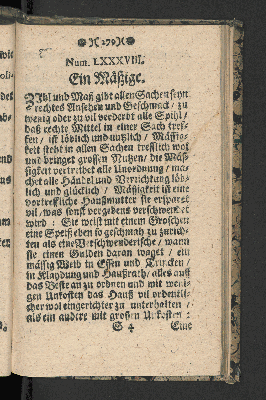 )( 279 )(
Num. LXXXVIII.
Ein Mäßige.
Zihl und Maß gibt allen Sachen seyn
rechtes Ansehen und Geschmack / zu
wenig oder zu vil verderbt alle Spihl /
daß rechte Mittel in einer Sach tref-
fen / ist löblich und nutzlich / Mässig-
keit steht in allen Sachen trefflich wol
und bringet grossen Nutzen / die Mäs-
sigkeit vertreibt alle Unordnung / ma-
chet alle Händel und Verrichtung löb-
lich und glücklich / Mässigkeit ist eine
vortrefliche Haußmutter sie ersparet
vil / was sonst vergebens verschwendet
wird : Sie weist mit einen Groschen
eine Speiß eben so geschmach zu zurich-
ten als eine Verschwenderische / wann
sie einen Gulden daran waget / ein
mässig Weib in Essen und Trincken /
in Klaydung und Haußrath / alles auff
das Beste an zu ordnen und mit weni-
gen Unkosten das Hauß vil ordentli-
cher wol eingerichter zu unterhalten /
als ein andere mit grossen Unkosten :
S 4 Eine